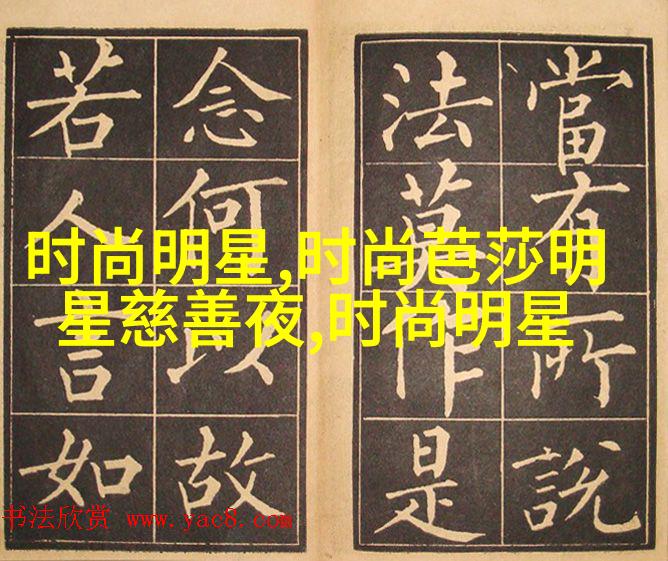 當有所說
法莫作是
念何以故
若人言如
时尚明星,时尚芭莎明
星慈善夜,时尚明星
书法欣赏 www.yac8.com